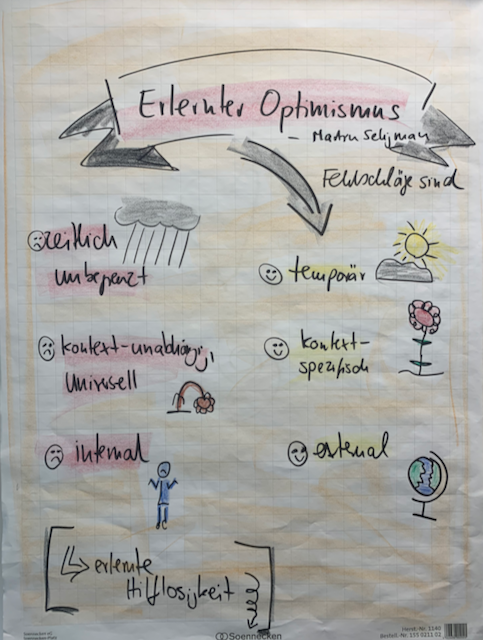 Erlernter Optimismus
– Martin Seligman
Fehlschläge sind
zeitlich
unbegrenzt
temporär
kontext-unabhängig,
universell
kontext-
spezifisch
internal
external
erlernte
Hilflosigkeit
Soennecken
Herst.-Nr. 1140
Bestell-Nr. 155 0211 02